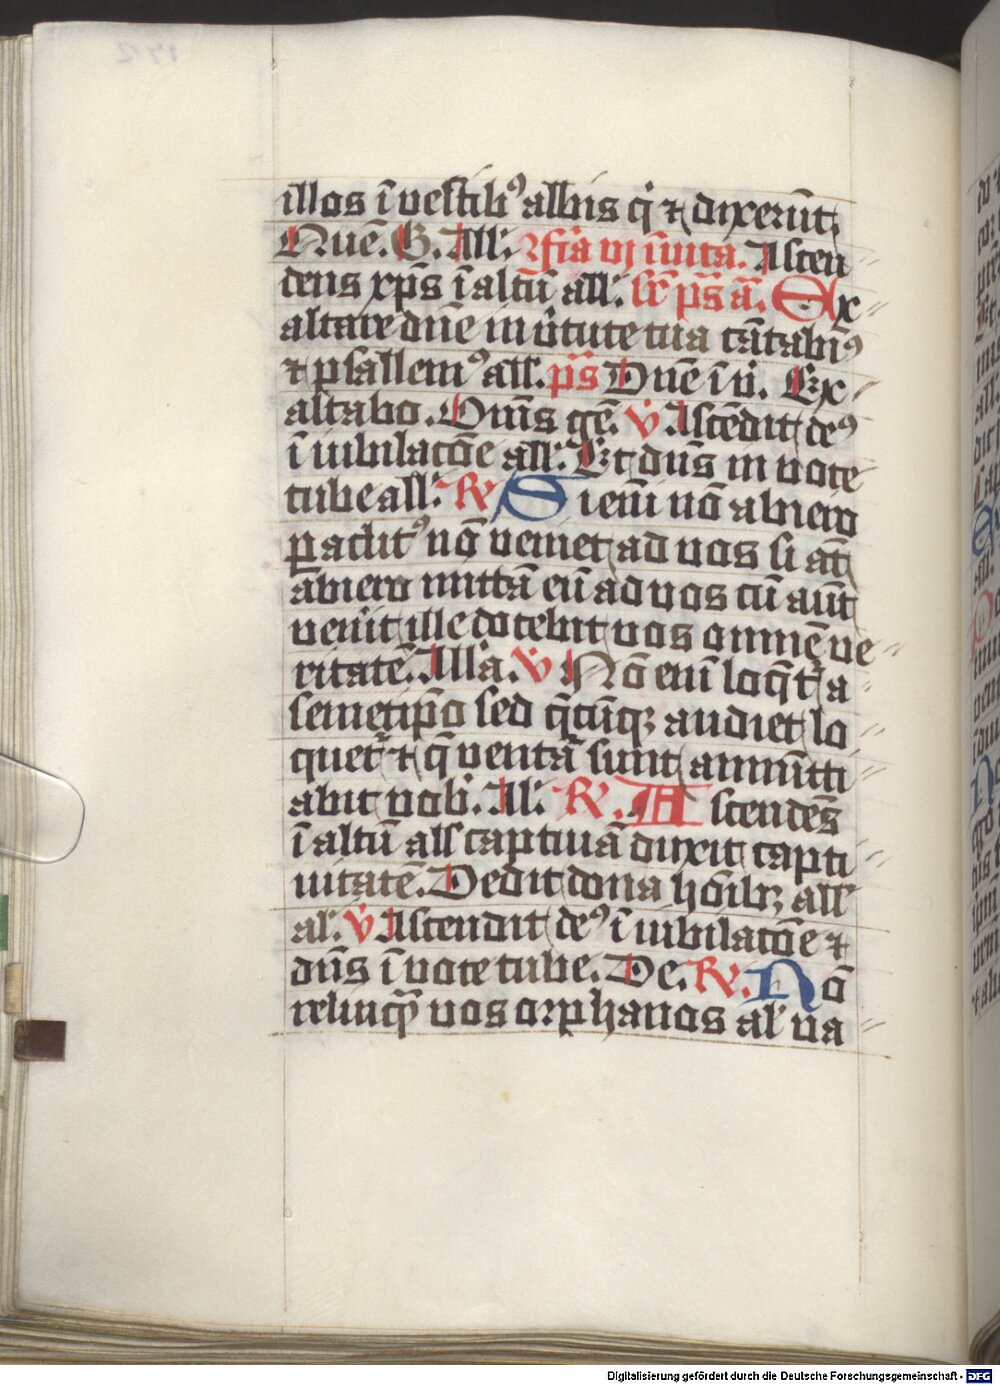 illos ī vestibꝰ albis q̇ ⁊ dixerūt
Que. G. All. ⁊ fīa vj īuita. Ascen
dens xp̄s ī altū all. sr̄ ps̄ ā. Ex
altare dnē in v̇tute tua cātabimꝰ
⁊ psallemꝰ all. ps̄ Dnē ī v̇. Ex
altabo. Om̄s gē. v̇ Ascēdit deꝰ
ī iubilacōe all. Et dn̄s in voce
tube all. R⁊ Si enī nō abiero
paclitꝰ nō veniet ad vos si āt
abiero mittā eū ad vos cū aūt
venīt ille docebit vos omnē ve
ritatē. Alla. v̇ Nō enī loq̄t᷑ a
semetip̄o sed q̄cūqꝫ audiet lo
quet᷑ ⁊ q̄ ventā sunt annūtti
abit vob. Al. R⁊. Ascendēs
ī altū all captiuā duxit capti
uitatē. Dedit dona hōibꝫ all
al. v̇ Ascendit deꝰ ī iubilacōe ⁊
dn̄s ī voce tube. De. R⁊. Nō
relinqꝫ vos orphanos al va
Digitalisierung gefördert durch die Deutsche Forschungsgemeinschaft - DFG